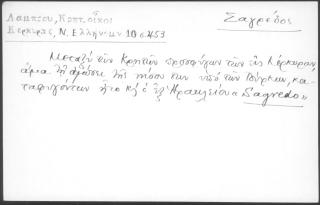 Λάμπρου, Κρητ. οἶκοι
Κερκύρας, Ν. Ἑλλην-μν. 10 σ. 453
Σαγρέδος
Μεταξὺ τῶν Κρητῶν προσφύγων τῶν εἰς Κέρκυραν,
ἅμα τῇ ἁλώσει τῆς νήσου των ὑπὸ τῶν Τούρκων, κα-
ταφυγόντων ἦτο κ ὁ ἐξ Ἡρακλείου « Sagredo »